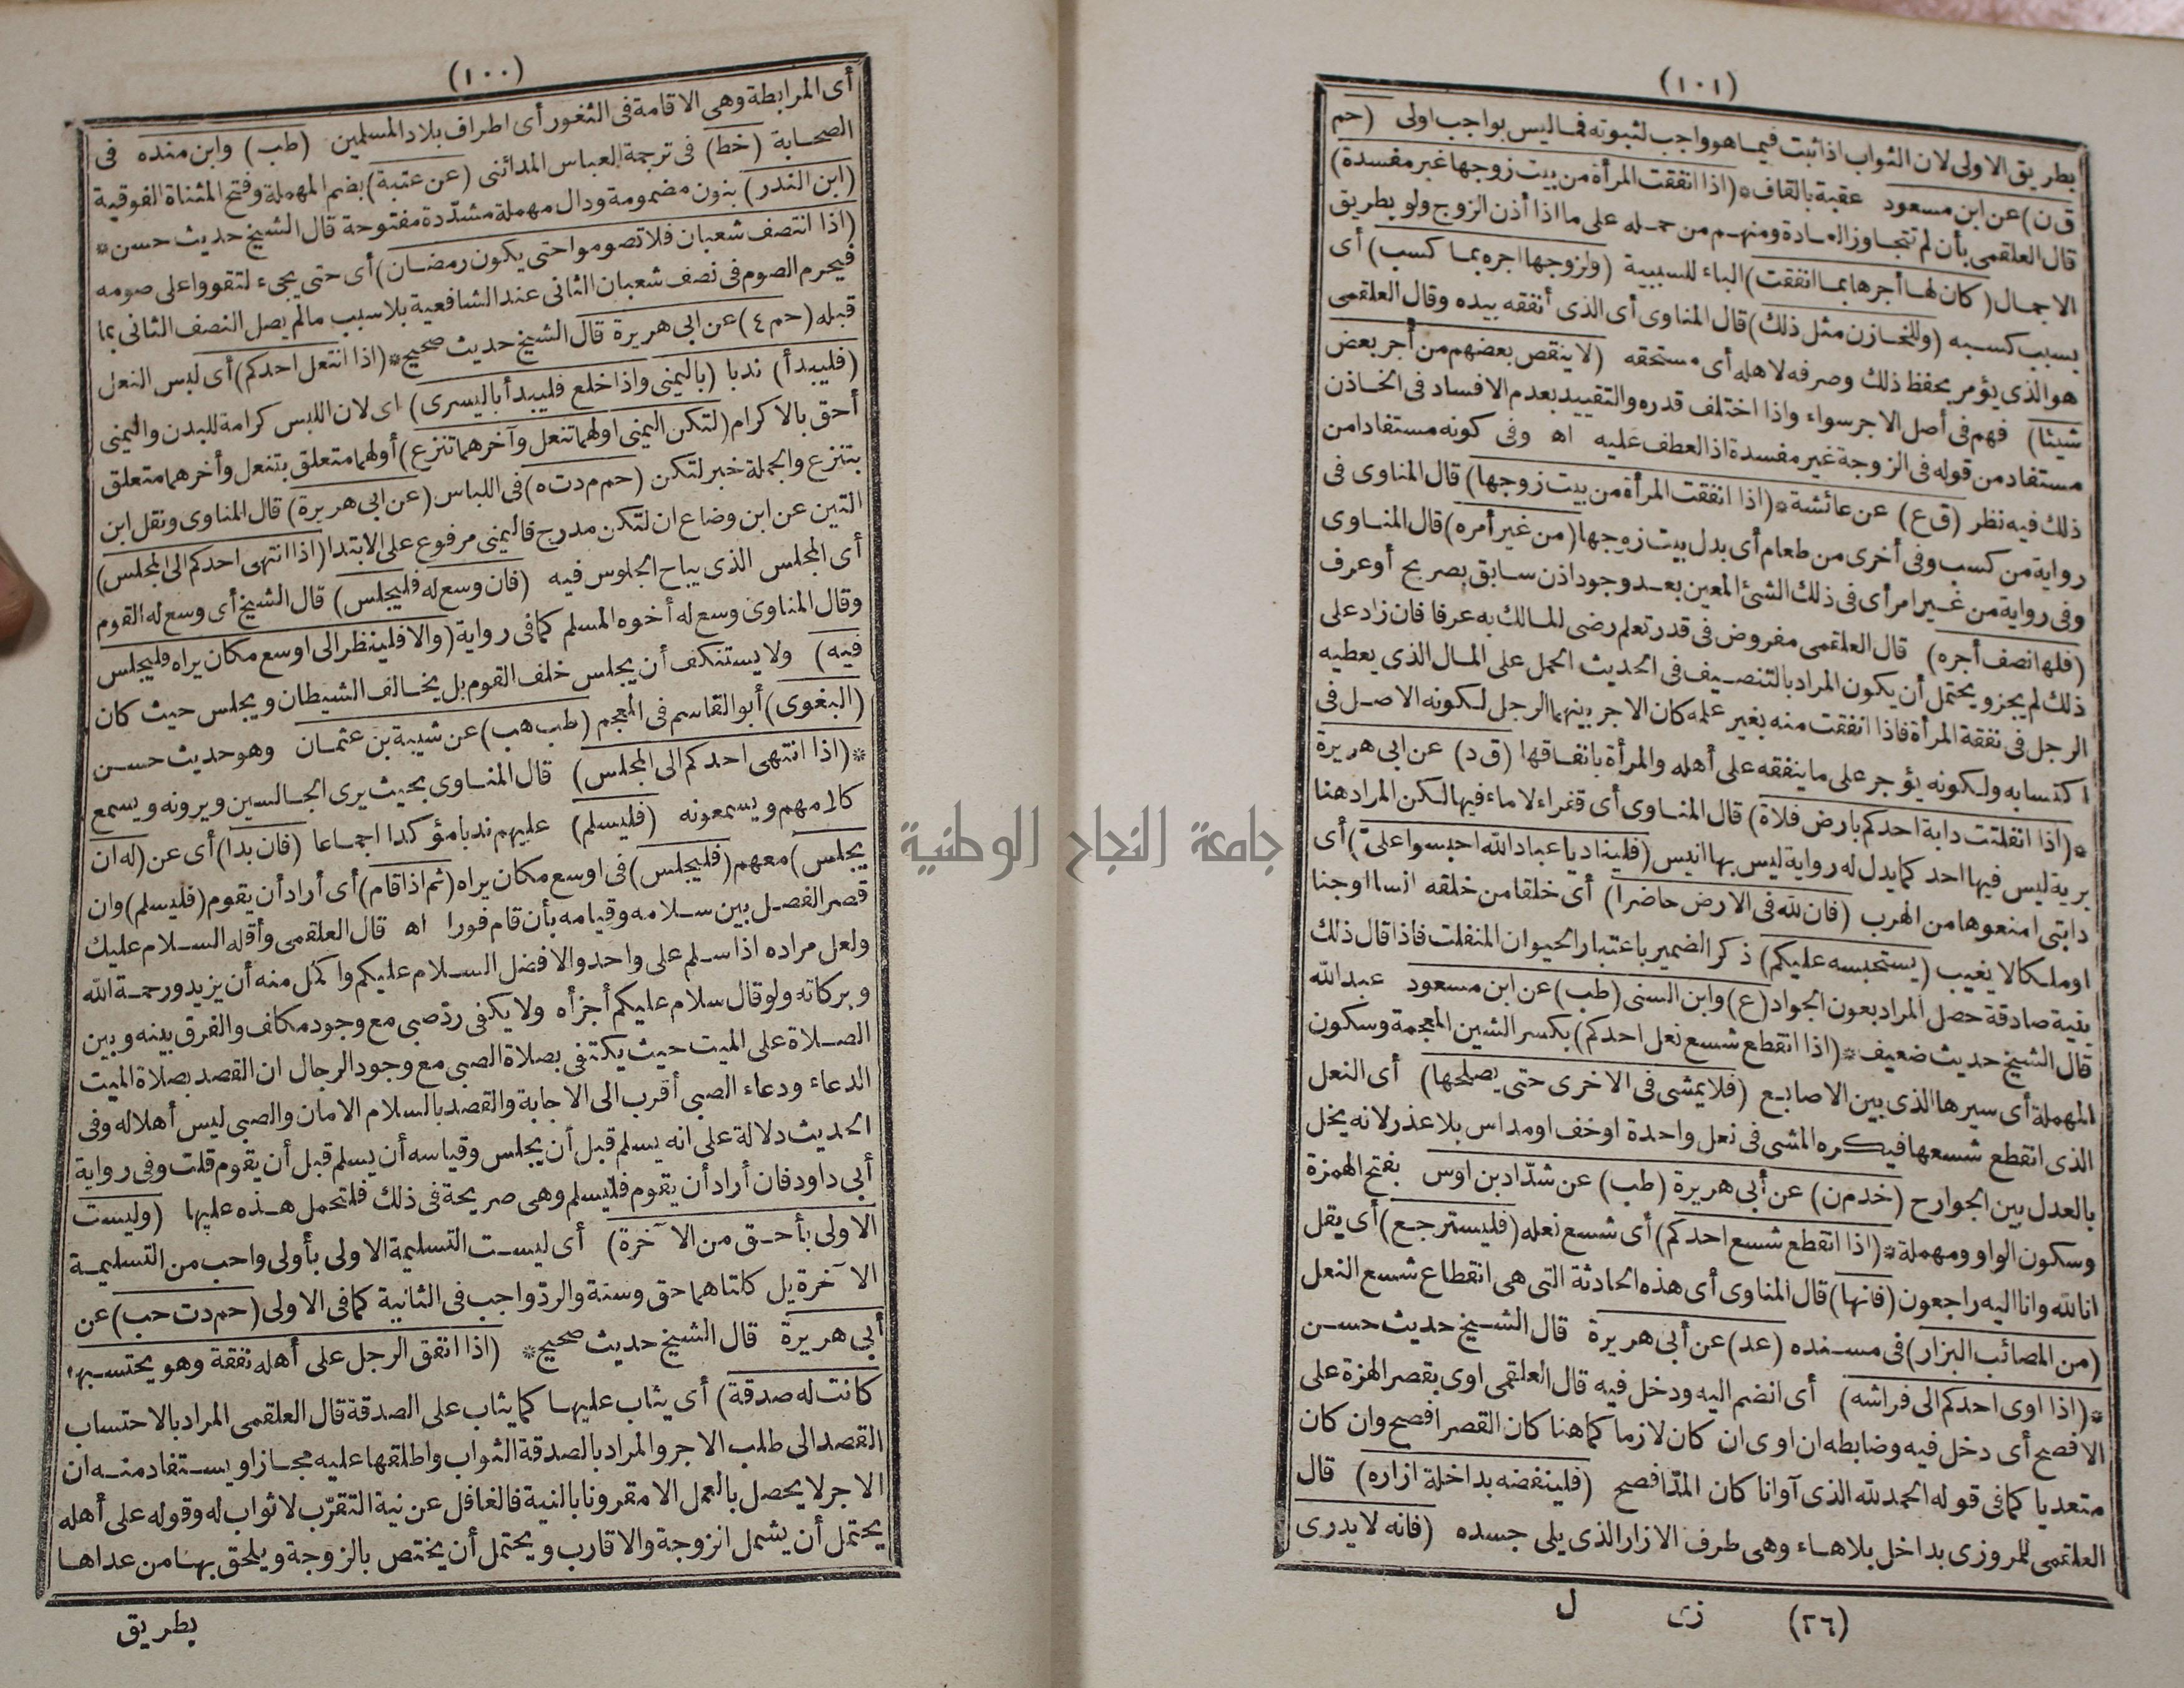 (١٠٠)
أى المرابطة وهى الاقامة فى الثغور أى اطراف بلاد المسلمين (طب) وابن منده فى
الصحابة (خط) فى ترجمة العباس المدائنى (عن عتبة) بضم المهملة وفتح المثناة الفوقية
(ابن الندر) بنون مضمومة ودال مهملة مشدّدة مفتوحة قال الشيخ حديث حسن *
(اذا انتصف شعبان فلا تصوموا حتى يكون رمضان) أى حتى يجىء لتقووا على صومه
فيحرم الصوم فى نصف شعبان الثانى عند الشافعية بلا سبب مالم يصل النصف الثانى بما
قبله (حم ٤) عن ابى هريرة قال الشيخ حديث صحيح * (اذا انتعل احدكم) أى لبس النعل
(فليبدأ) ندبا (باليمنى واذا خلع فليبدأ باليسرى) اى لان اللبس كرامة للبدن واليمنى
أحق بالاكرام (لتكن اليمنى اولهما تنعل وآخرهما تنزع) أولهما متعلق بتنعل وأخرهما متعلق
بتنزع والجملة خبر لتكن (حم م د ت ه) فى اللباس (عن ابى هريرة) قال المناوى ونقل ابن
التين عن ابن وضاع ان لتكن مدرج فاليمنى مرفوع على الابتدا (اذا انتهى احدكم الى المجلس)
أى المجلس الذى يباح الجلوس فيه (فان وسع له فليجلس) قال الشيخ أى وسع له القوم
وقال المناوى وسع له أخوه المسلم كما فى رواية (والا فلينظر الى اوسع مكان يراه فليجلس
فيه) ولا يستنكف أن يجلس خلف القوم بل يخالف الشيطان ويجلس حيث كان
(البغوى) أبو القاسم فى المعجم (طب هب) عن شيبة بن عثمان وهو حديث حسن
* (اذا انتهى احدكم الى المجلس) قال المناوى بحيث يرى الجالسين ويرونه ويسمع
كلامهم ويسمعونه (فليسلم) عليهم ندبا مؤكدا اجماعا (فان بدا) أى عن (له ان
يجلس) معهم (فليجلس) فى اوسع مكان يراه (ثم اذا قام) أى أراد أن يقوم (فليسلم) وان
قصر الفصل بين سلامه وقيامه بأن قام فورا اه قال العلقمى وأقله السلام عليك
ولعل مراده اذا سلم على واحد والافضل السلام عليكم واكمل منه أن يزيد ورحمة الله
وبركاته ولو قال سلام عليكم أجزأه ولا يكفى ردّ صبى مع وجود مكلف والفرق بينه وبين
الصلاة على الميت حيث يكتفى بصلاة الصبى مع وجود الرجال ان القصد بصلاة الميت
الدعاء ودعاء الصبى أقرب الى الاجابة والقصد بالسلام الامان والصبى ليس أهلا له وفى
الحديث دلالة على انه يسلم قبل أن يجلس وقياسه أن يسلم قبل أن يقوم قلت وفى رواية
أبى داود فان أراد أن يقوم فليسلم وهى صريحة فى ذلك فلتحمل هذه عليها (وليست
الاولى بأحق من الآخرة) أى ليست التسليمة الاولى بأولى واحب من التسليمة
الآخرة بل كلتاهما حق وسنة والردّ واجب فى الثانية كما فى الاولى (حم د ت حب) عن
أبى هريرة قال الشيخ حديث صحيح * (اذا انفق الرجل على أهله نفقة وهو يحتسبها
كانت له صدقة) أى يثاب عليها كما يثاب على الصدقة قال العلقمى المراد بالاحتساب
القصد الى طلب الاجر والمراد بالصدقة الثواب واطلقها عليه مجازا ويستفاد منه ان
الاجر لا يحصل بالعمل الا مقرونا بالنية فالغافل عن نية التقرّب لا ثواب له وقوله على أهله
يحتمل أن يشمل الزوجة والاقارب ويحتمل أن يختص بالزوجة ويلحق بها من عداها
بطريق
(١٠١)
بطريق الاولى لان الثواب اذا ثبت فيما هو واجب لثبوته فما ليس بواجب اولى (حم
ق ن) عن ابن مسعود عقبة بالقاف * (اذا انفقت المرأة من بيت زوجها غير مفسدة)
قال العلقمى بأن لم تتجاوز العادة ومنهم من حمله على ما اذا أذن الزوج ولو بطريق
الاجمال (كان لها أجرها بما انفقت) الباء للسببية (ولزوجها اجره بما كسب) أى
بسبب كسبه (وللخازن مثل ذلك) قال المناوى أى الذى أنفقه بيده وقال العلقمى
هو الذى يؤمر بحفظ ذلك وصرفه لاهله أى مستحقه (لا ينقص بعضهم من أجر بعض
شيئا) فهم فى أصل الاجر سواء واذا اختلف قدره والتقييد بعدم الافساد فى الخاذن
مستفاد من قوله فى الزوجة غير مفسدة اذ العطف عليه اه وفى كونه مستفادا من
ذلك فيه نظر (ق ع) عن عائشة * (اذا انفقت المرأة من بيت زوجها) قال المناوى فى
رواية من كسب وفى أخرى من طعام أى بدل بيت زوجها (من غير أمره) قال المناوى
وفى رواية من غير امر أى فى ذلك الشئ المعين بعد وجود اذن سابق بصريح أو عرف
(فلها نصف أجره) قال العلقمى مفروض فى قدر تعلم رضى للمالك به عرفا فان زاد على
ذلك لم يجز ويحتمل أن يكون المراد بالتنصيف فى الحديث الحمل على المال الذى يعطيه
الرجل فى نفقة المرأة فاذا انفقت منه بغير علمه كان الاجر بينهما الرجل لكونه الاصل فى
اكتسابه ولكونه يؤجر على ما ينفقه على أهله والمرأة بانفاقها (ق د) عن ابى هريرة
* (اذا انفلتت دابة احدكم بارض فلاة) قال المناوى أى قفراء لا ماء فيها لكن المراد هنا
برية ليس فيها احد كما يدل له رواية ليس بها انيس (فليناد يا عباد الله احبسوا علىّ) أى
دابتى امنعوها من الهرب (فان لله فى الارض حاضرا) أى خلقا من خلقه انسا او جنا
او ملكا لا يغيب (يستحبسه عليكم) ذكر الضمير باعتبار الحيوان المنفلت فاذا قال ذلك
بنية صادقة حصل المراد بعون الجواد (ع) وابن السنى (طب) عن ابن مسعود عبد الله
قال الشيخ حديث ضعيف * (اذا انقطع شسع نعل احدكم) بكسر الشين المعجمة وسكون
المهملة أى سيرها الذى بين الاصابع (فلا يمشى فى الاخرى حتى يصلحها) أى النعل
الذى انقطع شسعها فيكره المشى فى نعل واحدة او خف او مداس بلا عذر لانه يخل
بالعدل بين الجوارح (خد م ن) عن أبى هريرة (طب) عن شدّاد بن اوس بفتح الهمزة
وسكون الواو ومهملة * (اذا انقطع شسع احدكم) أى شسع نعله (فليسترجع) أى يقل
انا لله وانا اليه راجعون (فانها) قال المناوى أى هذه الحادثة التى هى انقطاع شسع النعل
(من المصائب البزار) فى مسنده (عد) عن أبى هريرة قال الشيخ حديث حسن
* (اذا اوى احدكم الى فراشه) أى انضم اليه ودخل فيه قال العلقمى اوى بقصر الهمزة على
الافصح أى دخل فيه وضابطه ان اوى ان كان لازما كما هنا كان القصر افصح وان كان
متعديا كما فى قوله الحمد لله الذى آوانا كان المدّ افصح (فلينفضه بداخلة ازاره) قال
العلقمى للمروزى بداخل بلا هاء وهى طرف الازار الذى يلى جسده (فانه لا يدرى
(٢٦) زى ل
جامعة النجاح الوطنية